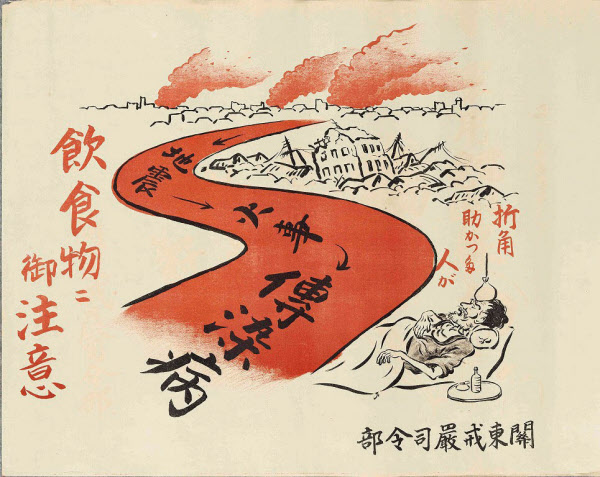 折角
助かつた
人が
地震
火事
傳染病
飲食物ニ
御注意
關東戒嚴司令部